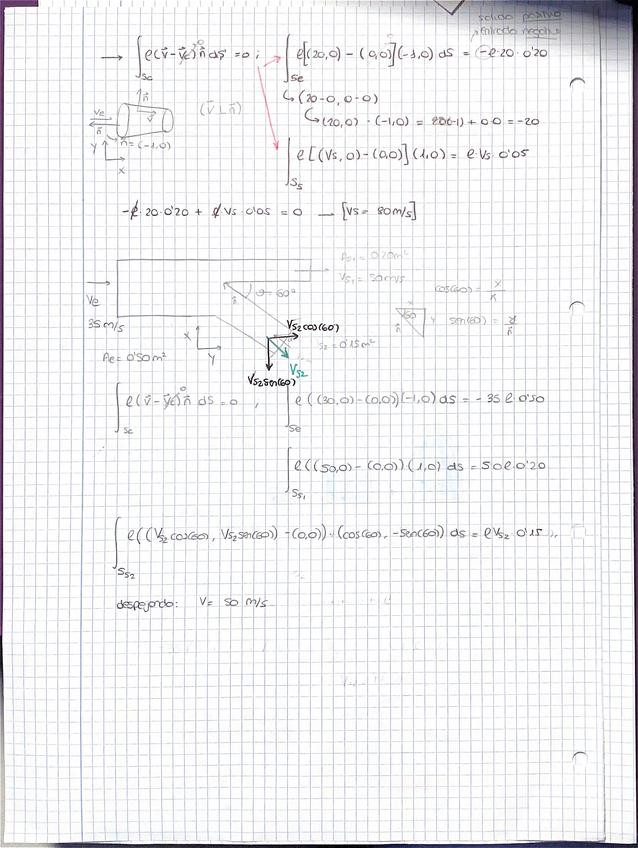 salida positivo
entrada negativo
→ ∫Sc ρ(v⃗ - v⃗c)⁰ n⃗ ds = 0 ; ∫Se ρ[(20,0) - (0,0)](-1,0) ds = -ρ·20·0'20
↳ (20-0, 0-0)
↳ (20,0) · (-1,0) = 20(-1) + 0·0 = -20
Ve n⃗ v⃗ (v⃗ ⊥ n⃗)
n⃗ = (-1,0)
Y X
∫Ss ρ[(Vs,0) - (0,0)](1,0) = ρ·Vs·0'05
-ρ·20·0'20 + ρ Vs·0'05 = 0 — [Vs = 80 m/s]
As₁ = 0'20 m²
Vs₁ = 50 m/s
Ve θ = 60° n⃗
cos(60) = x/n
35 m/s
60 n⃗ x y sen(60) = y/n
Vs2cos(60)
X Y
s₂ = 0'15 m²
Ae = 0'50 m²
Vs2
Vs2sen(60)
∫Sc ρ(v⃗ - v⃗c)⁰ n⃗ ds = 0 , ∫Se ρ((30,0) - (0,0))(-1,0) ds = -35 ρ 0'50
∫Ss₁ ρ((50,0) - (0,0))(1,0) ds = 50ρ·0'20
∫Ss₂ ρ((Vs₂cos(60), Vs₂sen(60)) - (0,0))·(cos(60), -sen(60)) ds = ρVs₂·0'15
despejando: V = 50 m/s